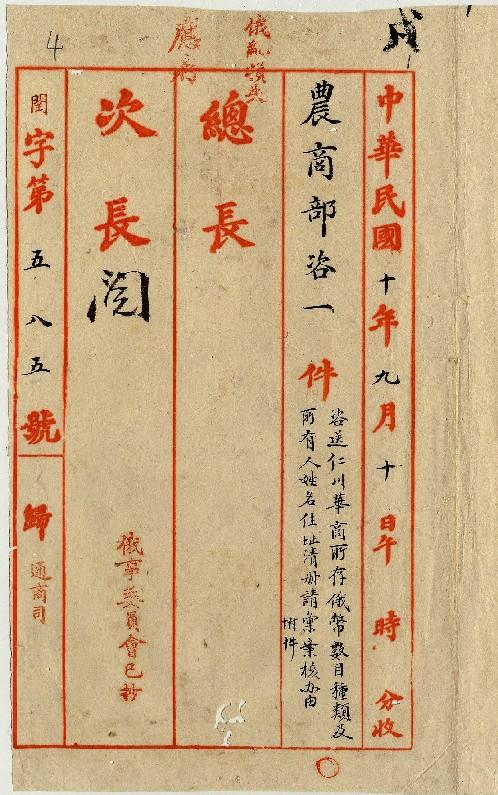 戌
中華民國十年九月十日午時分收
農商部咨一件
咨送仁川華商所存俄幣數目種類及
所有人姓名住址清册請彙案核办由
附件
俄亂損失
應病
總長
次長
閲
俄事委員會已抄
4
閏字第五八五號歸通商司